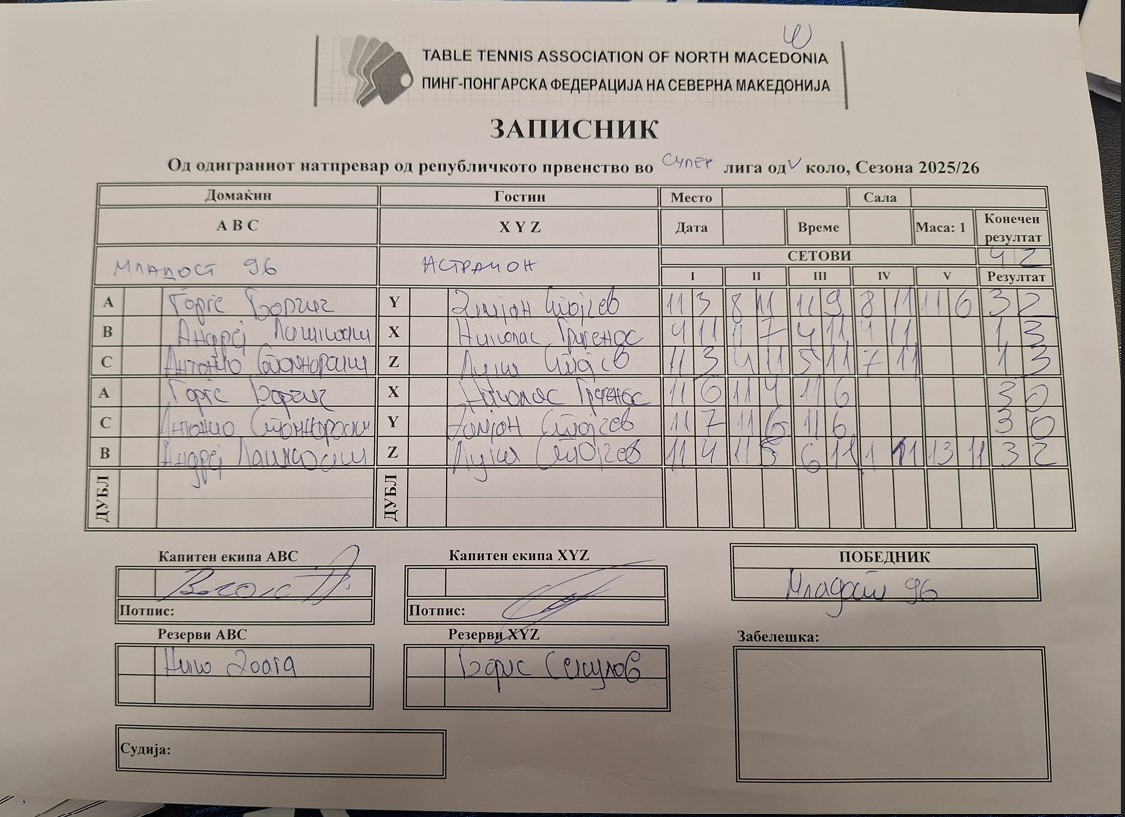 TABLE TENNIS ASSOCIATION OF NORTH MACEDONIA
ПИНГ-ПОНГАРСКА ФЕДЕРАЦИЈА НА СЕВЕРНА МАКЕДОНИЈА
ЗАПИСНИК
Од одиграниот натпревар од републичкото првенство во СУПЕР лига од V коло, Сезона 2025/26
Домаќин Гостин Место Сала
A B C X Y Z Дата Време Маса: 1 Конечен резултат
МЛАДОСТ 96 АСТРАИОН СЕТОВИ 4 2
I II III IV V Резултат
A Ѓорѓе Борчиќ Y Стојчев 11 3 8 11 11 9 8 11 11 6 3 2
B Андреј X Николас 4 11 11 7 4 11 11 1 3
C Антонио Z Лука Стојчев 11 3 4 11 5 11 7 11 1 3
A Ѓорѓе Борчиќ X Николас 11 6 11 4 11 6 3 0
C Антонио Y Стојчев 11 7 11 6 11 6 3 0
B Андреј Z Лука Стојчев 11 4 11 5 6 11 11 13 11 3 2
ДУБЛ ДУБЛ
Капитен екипа ABC Капитен екипа XYZ ПОБЕДНИК
Младост 96
Потпис: Потпис:
Резерви ABC Резерви XYZ Забелешка:
Борис Секулов
Судија: